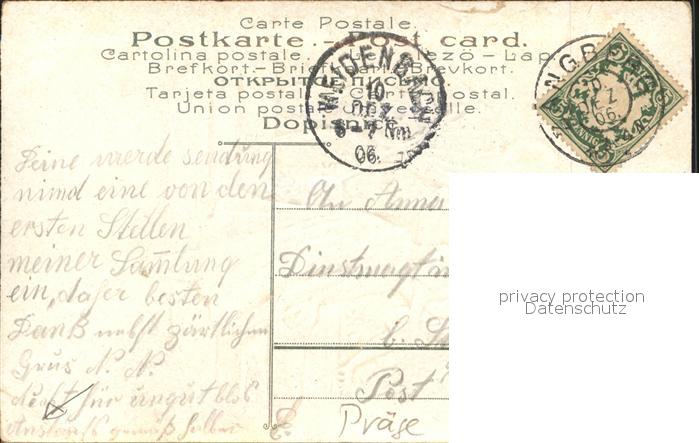 Carte Postale.
Postkarte. - Post card.
Cartolina postale. Levelező - Lap
Brefkort.- Briefkaart. Brevkort.
ОТКРЫТОЕ
Tarjeta postal. Carta postal.
Union postale universelle.
Dopisnice.
WEIDENBACH
10
DEZ
6-7 Nm
06.
NGB
10
DEZ
06.
5 5
Deine werde sendung
nimd eine von den
ersten Stellen
meiner Samlung
ein, dafer besten
Dank nebst zärtlichen
Grus N. N.
Nicht für ungut blos
Anstands gemäß halber
An Anna
Dinstmagt in
b.
Post
Präge
privacy protection
Datenschutz